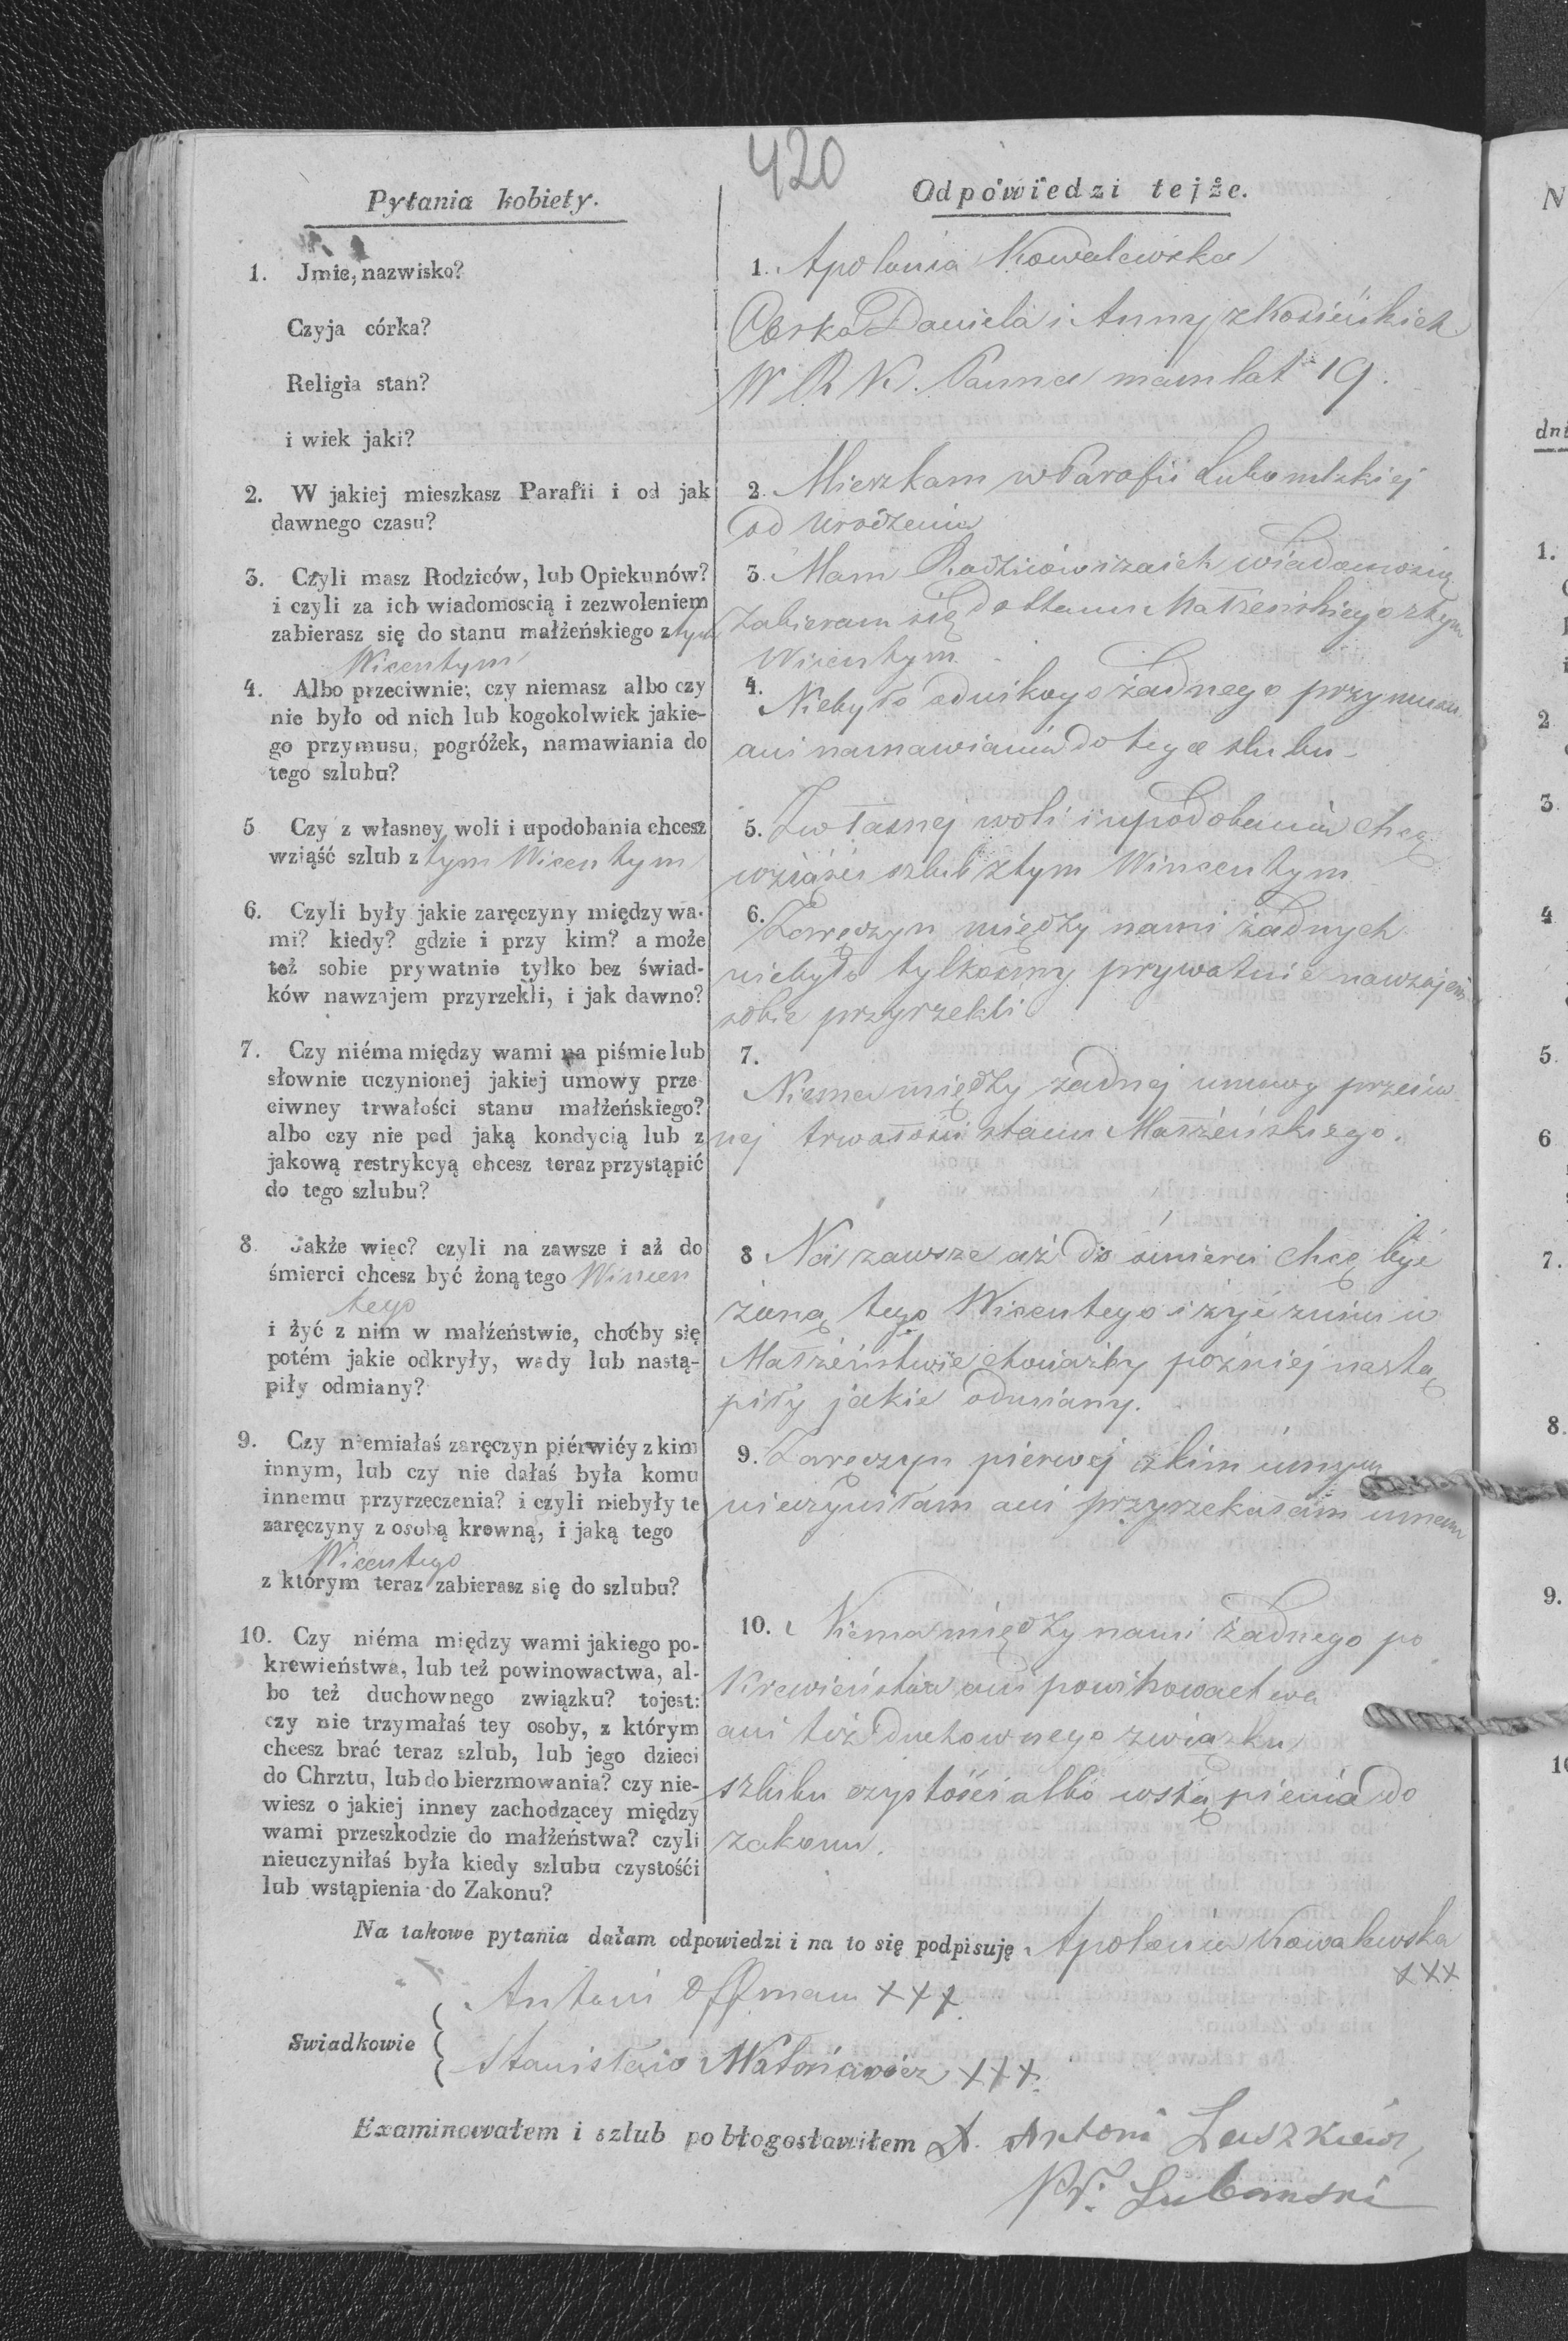 420
Pytania kobiety.
1. Jmie, nazwisko?
Czyja córka?
Religia stan?
i wiek jaki?
2. W jakiej mieszkasz Parafii i od jak
dawnego czasu?
3. Czyli masz Rodziców, lub Opiekunów?
i czyli za ich wiadomoscią i zezwoleniem
zabierasz się do stanu małżeńskiego z tym
Wicentym
4. Albo przeciwnie, czy niemasz albo czy
nie było od nich lub kogokolwiek jakie-
go przymusu, pogróżek, namawiania do
tego szlubu?
5 Czy z własney woli i upodobania chcesz
wziąść szlub z tym Wicentym
6. Czyli były jakie zaręczyny między wa-
mi? kiedy? gdzie i przy kim? a może
też sobie prywatnie tylko bez świad-
ków nawzajem przyrzekli, i jak dawno?
7. Czy niéma między wami na piśmie lub
słownie uczynionej jakiej umowy prze
ciwney trwałości stanu małżeńskiego?
albo czy nie pod jaką kondycią lub z
jakową restrykcyą chcesz teraz przystąpić
do tego szlubu?
8. Jakże więc? czyli na zawsze i aż do
śmierci chcesz być żoną tego Wincen
tego
i żyć z nim w małżeństwie, choćby się
potém jakie odkryły, wady lub nastą-
piły odmiany?
9. Czy niemiałaś zaręczyn piérwiéy z kim
innym, lub czy nie dałaś była komu
innemu przyrzeczenia? i czyli niebyły te
zaręczyny z osobą krewną, i jaką tego
Wicentego
z którym teraz zabierasz się do szlubu?
10. Czy niéma między wami jakiego po-
krewieństwa, lub też powinowactwa, al-
bo też duchownego związku? tojest:
czy nie trzymałaś tey osoby, z którym
chcesz brać teraz szlub, lub jego dzieci
do Chrztu, lub do bierzmowania? czy nie-
wiesz o jakiej inney zachodzącey między
wami przeszkodzie do małżeństwa? czyli
nieuczyniłaś była kiedy szlubu czystośći
lub wstąpienia do Zakonu?
Odpowiedzi tejże.
1. Apolonia Kowalewska
Córka Daniela i Anny z Kosińskich
W R K. Panna mam lat 19.
2. Mieszkam w Parafii Lubomlskiej
od urodzenia
3. Mam Rodziców i za ich wiadomością
zabieram się do stanu Małżeńskiego z tym
Wicentym.
4. Niebyło od nikogo żadnego przymusu
ani namawiania do tego slubu
5. Z własnej woli i upodobania chcę
wziąść szlub z tym Wincentym
6. Zaręczyn między nami żadnych
niebyło tylkosmy prywatnie nawzajem
sobie przyrzekli
7. Niema między żadnej umowy przeciw
nej trwałości stanu Małżeńskiego.
8 Na zawsze aż do śmierci chcę być
żoną tego Wicentego i żyć z nim w
Małżeństwie chociażby pozniej nastą
piły jakie odmiany.
9. Zaręczyn pierwej z kim innym
nieczyniłam ani przyrzekałam innem
10. Niema między nami żadnego po
krewieństwa ani powinowactwa
ani też duchownego związku
szlubu czystości albo wstąpienia do
zakonu.
Na takowe pytania dałam odpowiedzi i na to się podpisuję Apolonia Kowalewska
xxx
Swiadkowie
Antoni Offman xxx
Stanisław xxx
Examinowałem i szlub pobłogosławiłem X. Antoni
Lubomski
N
dni
1.
2
3.
4
5.
6
7.
8.
9.